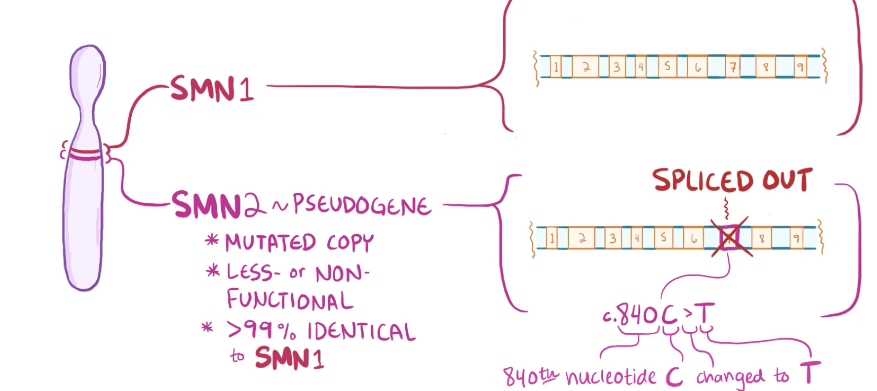 SMN1
1 2 3 4 5 6 7 8 9
SPLICED OUT
SMN2 ~ PSEUDOGENE
* MUTATED COPY
* LESS- or NON-
FUNCTIONAL
* >99% IDENTICAL
to SMN1
1 2 3 4 5 6 8 9
c.840C>T
840th nucleotide C changed to T